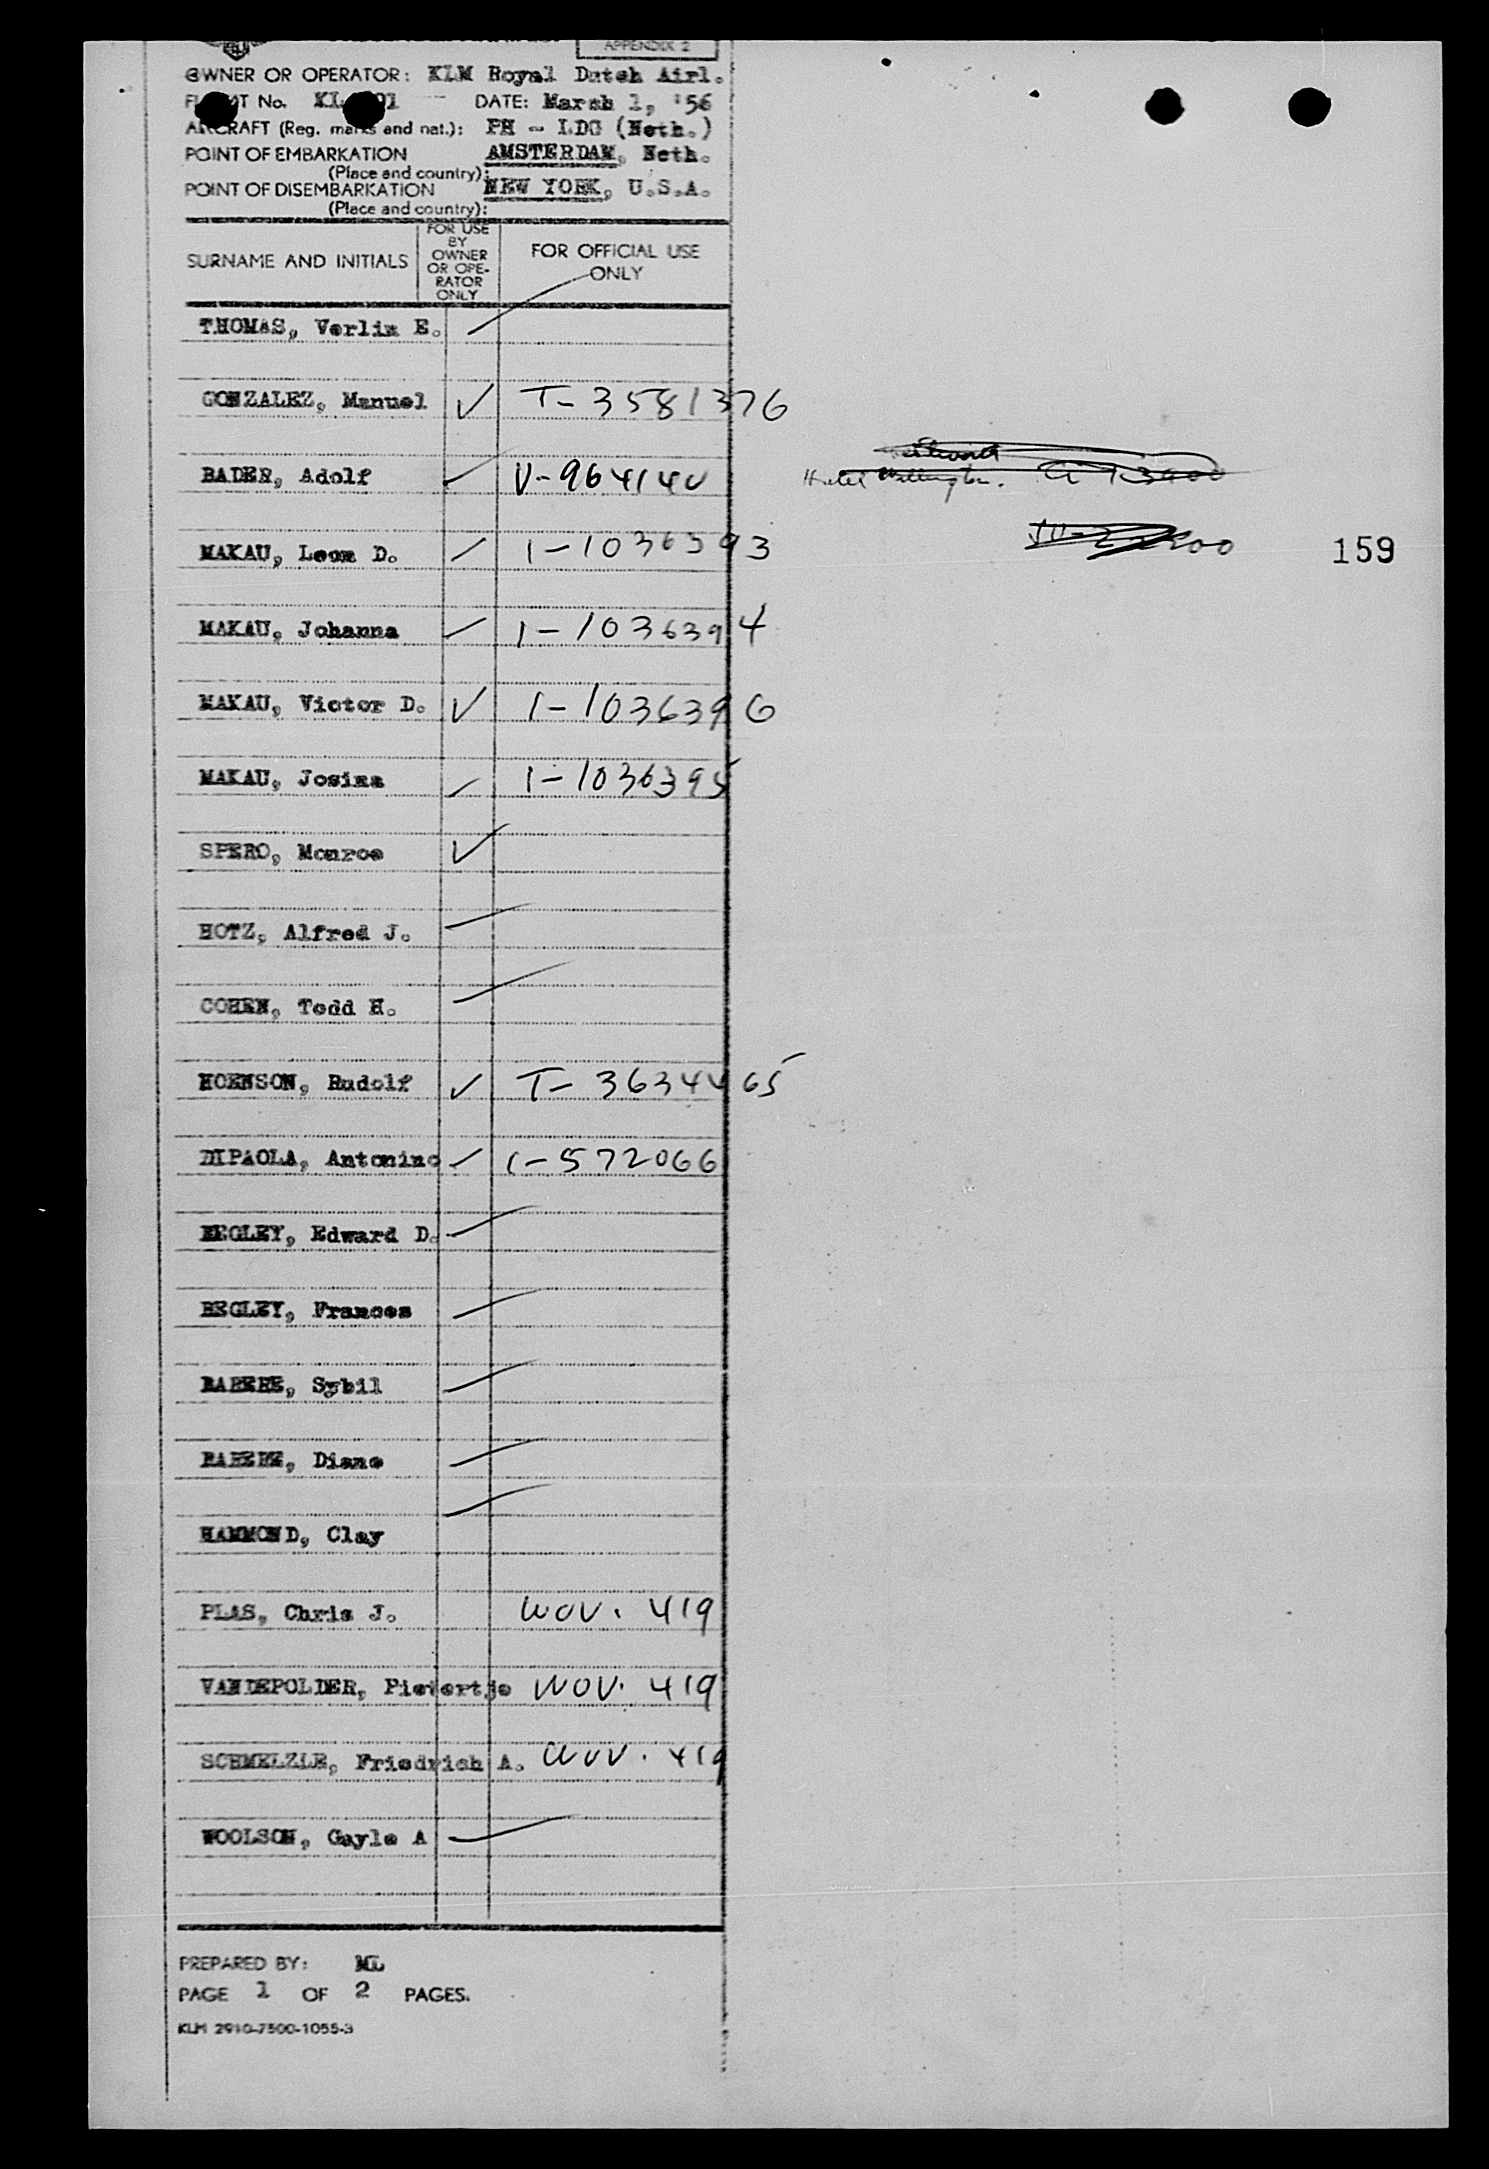 APPENDIX 2
OWNER OR OPERATOR: KLM Royal Dutch Airl.
No. DATE: March 1, '56
AIRCRAFT (Reg. marks and nat.): PH - LDG (Neth.)
POINT OF EMBARKATION AMSTERDAM, Neth.
(Place and country):
POINT OF DISEMBARKATION NEW YORK, U.S.A.
(Place and country):
SURNAME AND INITIALS
FOR USE
BY
OWNER
OR OPE-
RATOR
ONLY
FOR OFFICIAL USE
ONLY
THOMAS, Verlin E.
GONZALEZ, Manuel ✓ T-3581376
BADER, Adolf V-964140
MAKAU, Leon D. 1-1036393
159
MAKAU, Johanna 1-1036394
MAKAU, Victor D. ✓ 1-1036396
MAKAU, Josina 1-1036395
SPERO, Monroe ✓
HOTZ, Alfred J.
COHEN, Todd H.
HOENSON, Rudolf ✓ T-3634465
DIPAOLA, Antonino 1-572066
BEGLEY, Edward D.
BEGLEY, Frances
Sybil
Diane
HAMMOND, Clay
PLAS, Chris J. WOV. 419
VANDEPOLDER, Pietertje WOV. 419
SCHMELZLE, Friedrich A. WOV. 419
WOOLSON, Gayle A
PREPARED BY: ML
PAGE 1 OF 2 PAGES.
KLM 2910-7500-1055-3